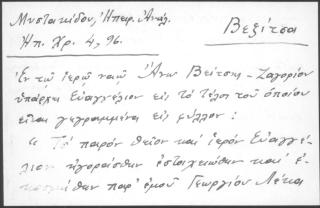 Μυστακίδου, Ἠπειρ. Ἀνάλ.
Ἠπ. Χρ. 4, 96.
Βεξίτσα
Ἐν τῷ ἱερῷ ναῷ Ἄνω Βεΐτσης - Ζαγορίου
ὑπάρχει Εὐαγγέλιον εἰς τὸ τέλος τοῦ ὁποίου
εἶναι γεγραμμένα εἰς φύλλον:
"Τὸ παρὸν θεῖον καὶ ἱερὸν Εὐαγγέ-
λιον ἠγοράσθη ἐστοιχειώθη καὶ ἐ-
παρ' ἐμοῦ Γεωργίου Λέκα